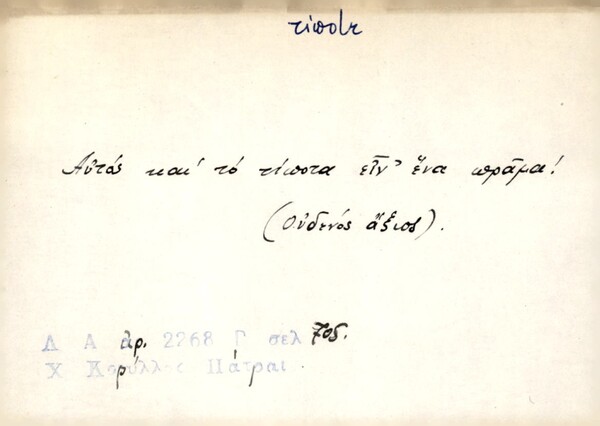 τίποτε
Αὐτός καί τό τίποτα εἶν' ἕνα πρᾶμα!
(Οὐδενός ἄξιος).
Λ Α ἀρ. 2268 Γ σελ 705.
Χ Κορύλλος Πάτραι